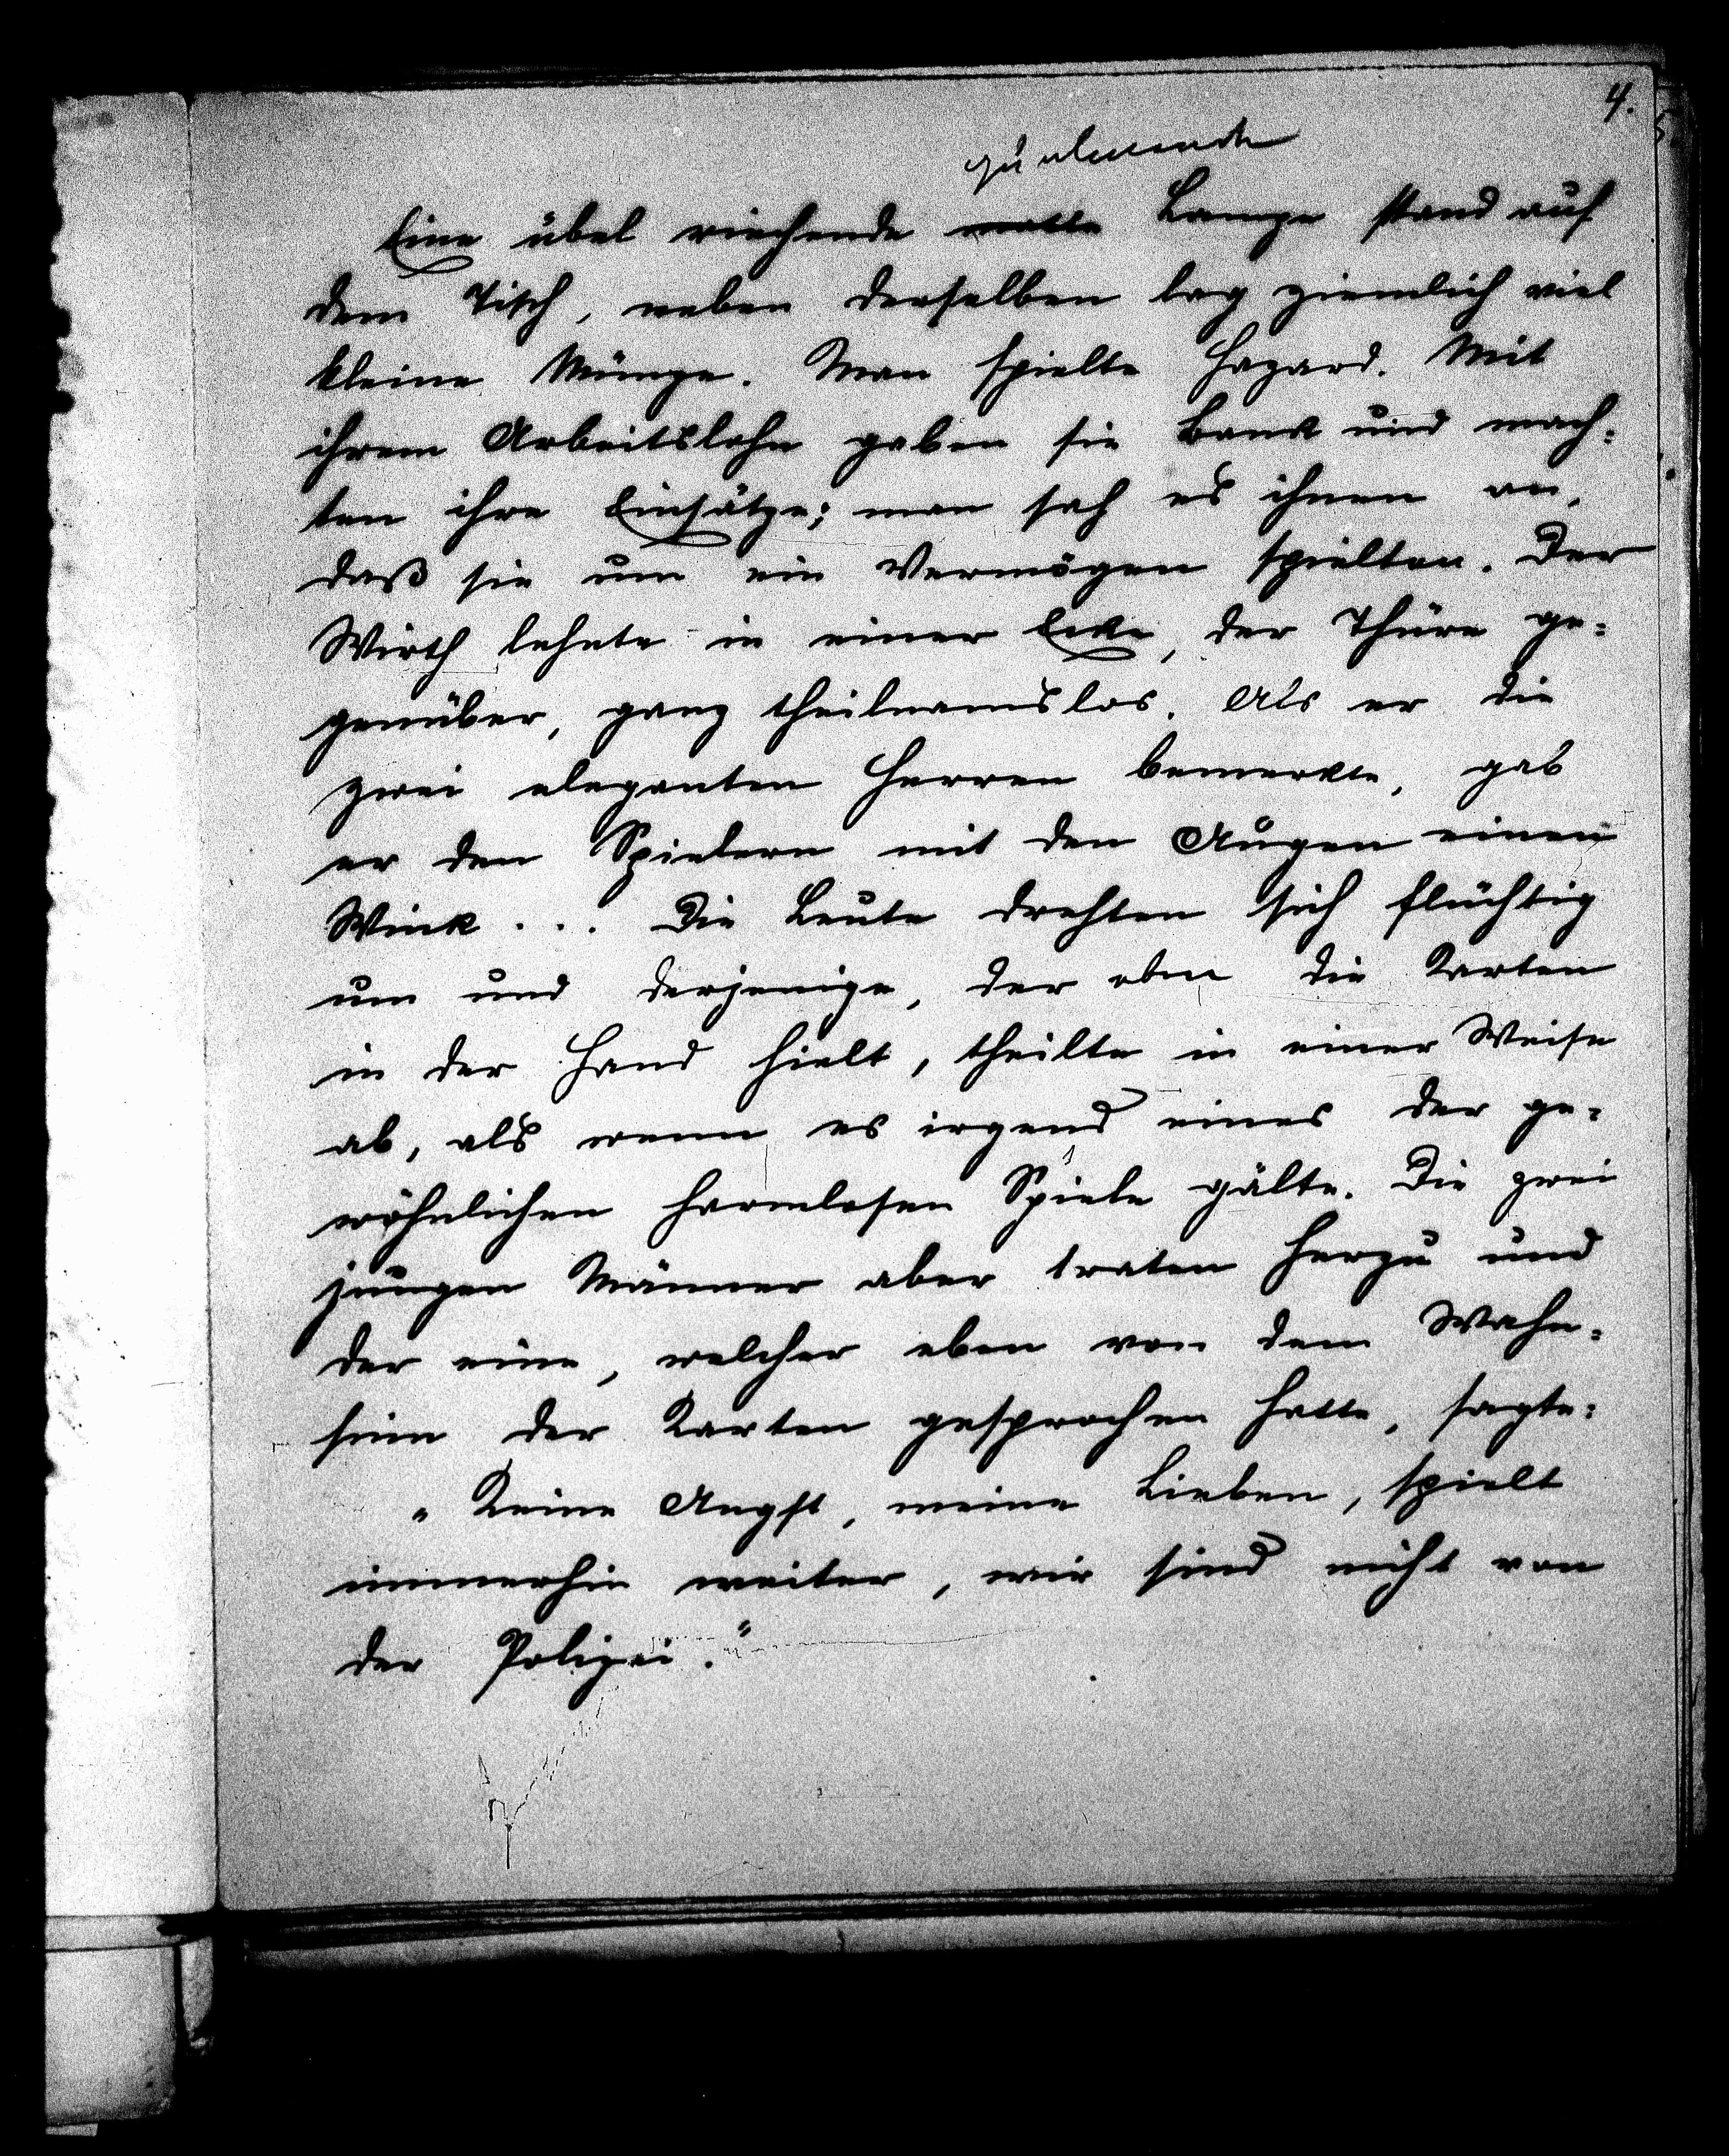 4.
qualmende
Eine übel riechende matte Lampe stand auf
dem Tisch, neben derselben lag ziemlich viel
kleine Münze. Man spielte Hazard. Mit
ihrem Arbeitslohn gaben sie Bank und mach=
ten ihre Einsätze; man sah es ihnen an,
daß sie um ein Vermögen spielten. Der
Wirth lehnte in einer Ecke, der Thüre ge=
genüber, ganz theilnamslos. Als er die
zwei eleganten Herren bemerkte, gab
er den Spielern mit den Augen einen
Wink... Die Leute drehten sich flüchtig
um und derjenige, der eben die Karten
in der Hand hielt, theilte in einer Weise
ab, als wenn es irgend eines der ge=
wöhnlichen harmlosen Spiele gälte. Die zwei
jungen Männer aber traten herzu und
der eine, welcher eben von dem Wahn=
sinn der Karten gesprochen hatte, sagte:
„Keine Angst, meine Lieben, spielt
immerhin weiter, wir sind nicht von
der Polizei."